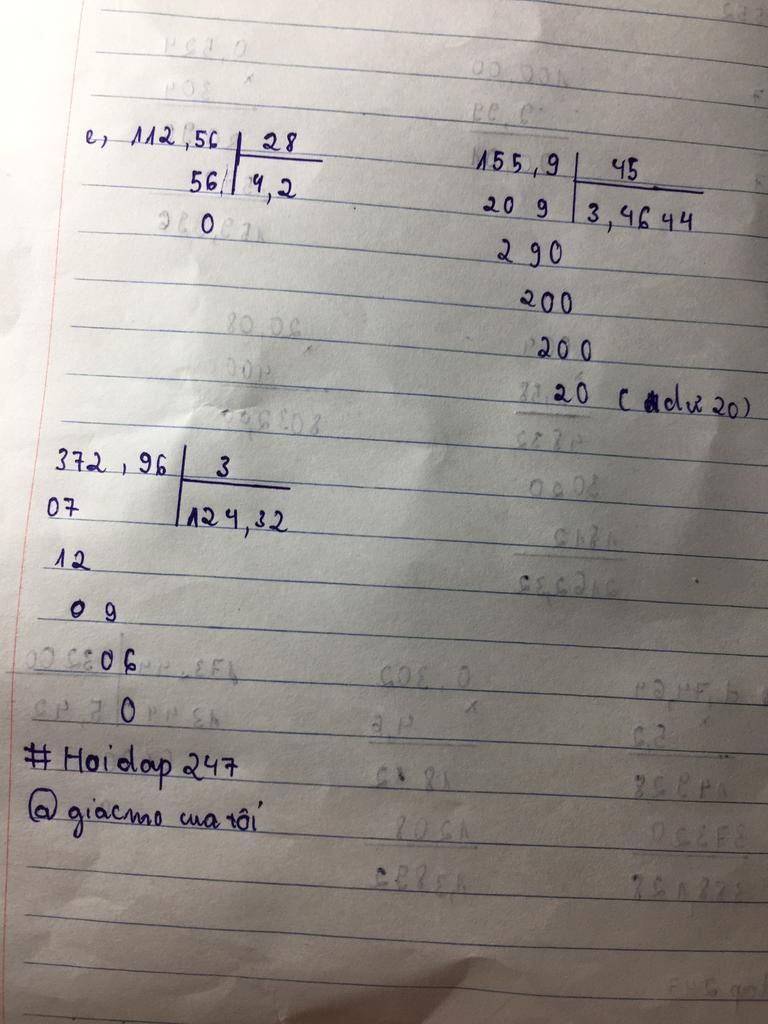 c, 112,56 | 28
56 | 4,2
0
155,9 | 45
20 9 | 3,4644
290
200
200
20 (dư 20)
372,96 | 3
07 | 124,32
12
09
06
0
# Hoidap 247
@ giacmo cua tôi